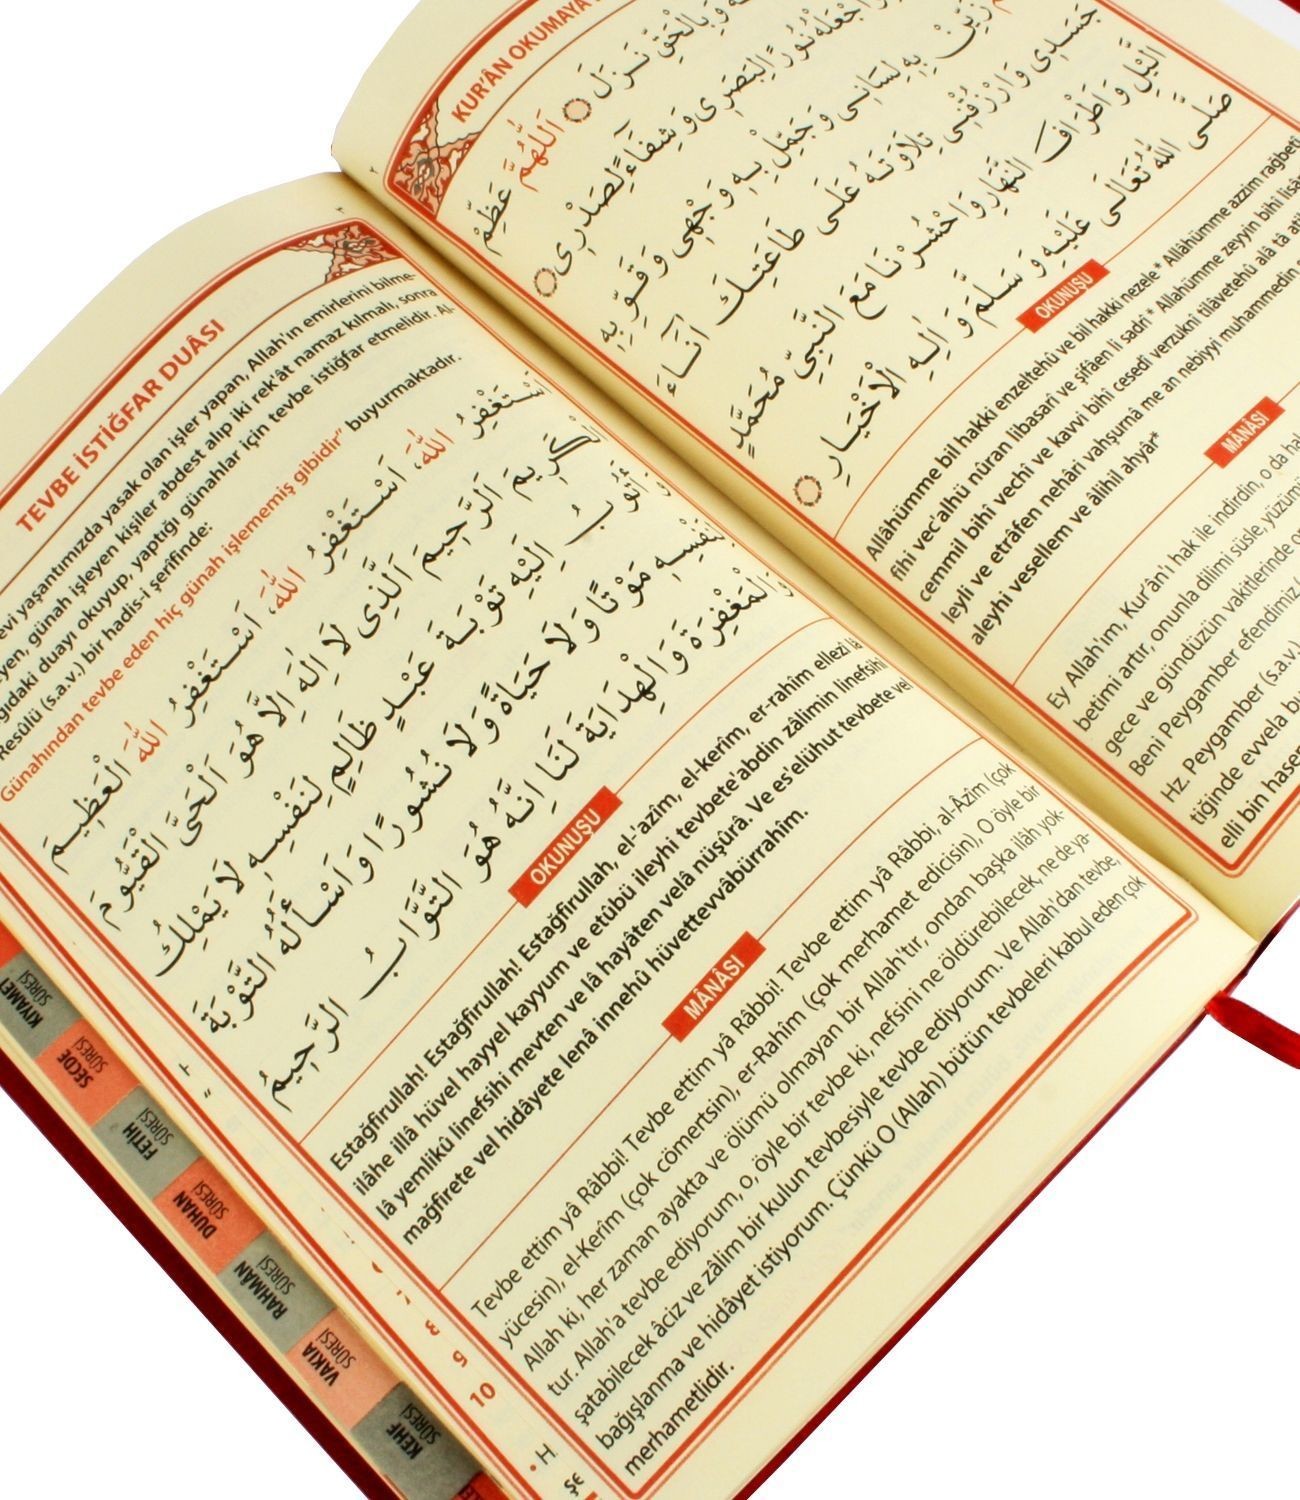 TEVBE İSTİĞFAR DUÂSI
yaşantımızda yasak olan işler yapan, Allah'ın emirlerini bilme-
günah işleyen kişiler abdest alıp iki rek'ât namaz kılmalı, sonra
duayı okuyup, yaptığı günahlar için tevbe istiğfar etmelidir. Al-
Resûlü (s.a.v.) bir hadis-i şerifinde:
Günahından tevbe eden hiç günah işlememiş gibidir" buyurmaktadır.
اَسْتَغْفِرُ اللّٰهَ، اَسْتَغْفِرُ اللّٰهَ، اَسْتَغْفِرُ اللّٰهَ الْعَظِيمَ
الْكَرِيمَ اَلرَّحِيمَ اَلَّذِى لَا اِلٰهَ اِلَّا هُوَ اَلْحَىَّ الْقَيُّومَ
اِلَيْهِ تَوْبَةَ عَبْدٍ ظَالِمٍ لِنَفْسِهِ لَا يَمْلِكُ
مَوْتًا وَلَا حَيَاةً وَلَا نُشُورًا وَاَسْأَلُهُ التَّوْبَةَ
وَالْمَغْفِرَةَ وَالْهِدَايَةَ لَنَا اِنَّهُ هُوَ التَّوَّابُ
الرَّحِيمُ
OKUNUŞU
Estağfirullah! Estağfirullah! Estağfirullah, el-'azîm, el-kerîm, er-rahîm ellezî lâ
ilâhe illâ hüvel hayyel kayyum ve etûbü ileyhi tevbete'abdin zâlimin linefsihî
lâ yemlikû linefsihi mevten ve lâ hayâten velâ nüşûrâ. Ve es'elühut tevbete vel
mağfirete vel hidâyete lenâ innehû hüvettevvâbürrahîm.
MÂNÂSI
Tevbe ettim yâ Râbbi! Tevbe ettim yâ Râbbi! Tevbe ettim yâ Râbbi, al-Âzîm (çok
yücesin), el-Kerîm (çok cömertsin), er-Rahîm (çok merhamet edicisin), O öyle bir
Allah ki, her zaman ayakta ve ölümü olmayan bir Allah'tır, ondan başka ilâh yok-
tur. Allah'a tevbe ediyorum, o, öyle bir tevbe ki, nefsini ne öldürebilecek, ne de ya-
şatabilecek âciz ve zâlim bir kulun tevbesiyle tevbe ediyorum. Ve Allah'dan tevbe,
bağışlanma ve hidâyet istiyorum. Çünkü O (Allah) bütün tevbeleri kabul eden çok
merhametlidir.
KUR'ÂN OKUMAYA
وَبِالْحَقِّ نَزَلَ اَللّٰهُمَّ عَظِّمْ
وَاجْعَلْهُ نُورًا لِبَصَرِى وَشِفَاءً لِصَدْرِى
زَيِّنْ بِهِ لِسَانِى وَجَمِّلْ بِهِ وَجْهِى وَقَوِّ بِهِ
جَسَدِى وَارْزُقْنِى تِلَاوَتَهُ عَلَى طَاعَتِكَ اٰنَاءَ
الَّيْلِ وَاَطْرَافَ النَّهَارِ وَاحْشُرْنَا مَعَ النَّبِىِّ مُحَمَّدٍ
صَلَّى اللّٰهُ تَعَالَى عَلَيْهِ وَسَلَّمَ وَاٰلِهِ الْاَخْيَارِ
OKUNUŞU
Allâhümme bil hakki enzeltehü ve bil hakki nezele* Allâhümme azzim rağbetî
fîhi vec'alhü nûran libasarî ve şifâen li sadrî* Allahümme zeyyin bihî lisânî
cemmil bihî vechî ve kavvi bihî cesedî verzuknî tilâvetehû alâ tâ
leyli ve etrâfen nehâri vahşurnâ me an nebiyyi muhammedin
aleyhi vesellem ve âlihil ahyâr*
MÂNÂSI
Ey Allah'ım, Kur'ân'ı hak ile indirdin, o da
betimi artır, onunla dilimi süsle, yüzümü
gece ve gündüzün vakitlerinde
Beni Peygamber efendimiz
Hz. Peygamber (s.a.v.)
tiğinde evvela
elli bin
KIYAMET SÛRESİ
SECDE SÛRESİ
FETİH SÛRESİ
DUHAN SÛRESİ
RAHMÂN SÛRESİ
VAKIA SÛRESİ
KEHF SÛRESİ
9
10